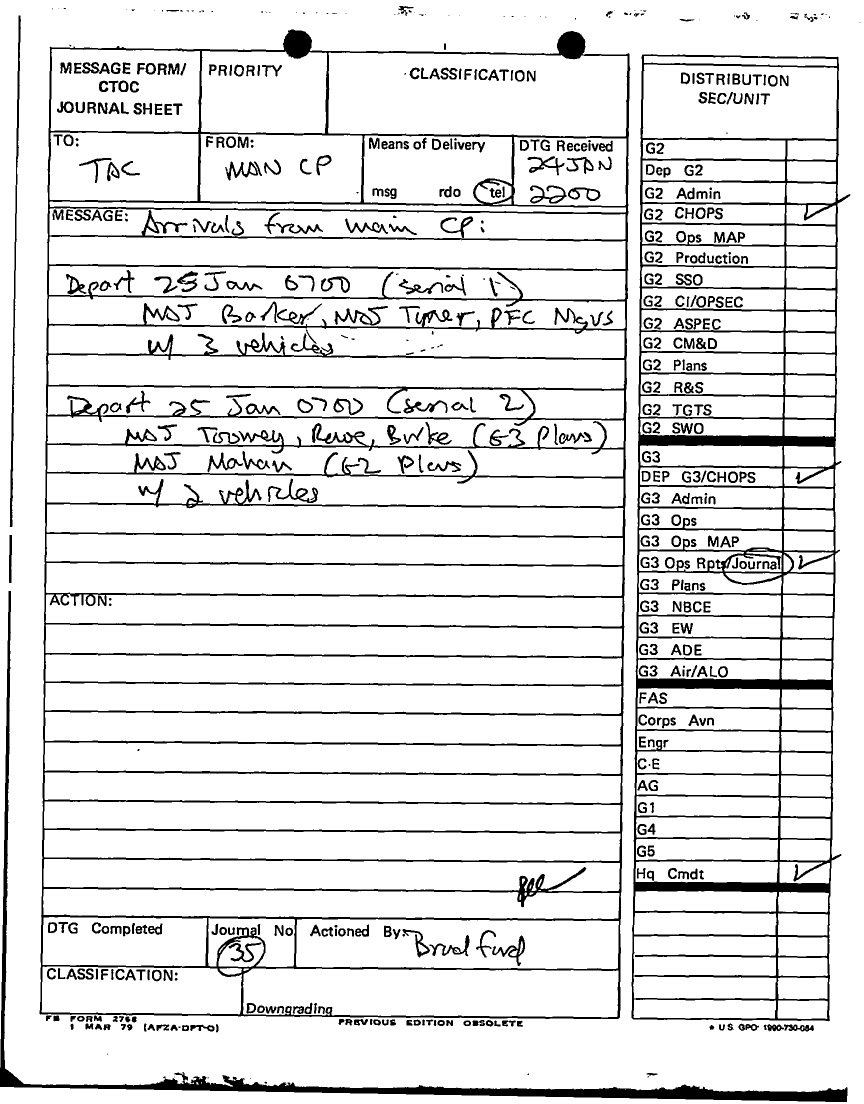 MESSAGE FORM/
CTOC
JOURNAL SHEET
PRIORITY
CLASSIFICATION
TO:
TAC
FROM:
MAIN CP
Means of Delivery
msg rdo tel
DTG Received
24 JAN
2200
MESSAGE: Arrivals from main CP:
Depart 25 Jan 0700 (serial 1)
MAJ Barker, MAJ Tyner, PFC
w/ 3 vehicles
Depart 25 Jan 0700 (serial 2)
MAJ Toomey, Rowe, Burke (G3 Plans)
MAJ Mahan (G2 Plans)
w/ 2 vehicles
ACTION:
DTG Completed
Journal No
35
Actioned By: Bradford
CLASSIFICATION:
Downgrading
FB FORM 2768
1 MAR 79 (AFZA-DPT-O)
PREVIOUS EDITION OBSOLETE
DISTRIBUTION
SEC/UNIT
G2
Dep G2
G2 Admin
G2 CHOPS
G2 Ops MAP
G2 Production
G2 SSO
G2 CI/OPSEC
G2 ASPEC
G2 CM&D
G2 Plans
G2 R&S
G2 TGTS
G2 SWO
G3
DEP G3/CHOPS
G3 Admin
G3 Ops
G3 Ops MAP
G3 Ops Rpts/Journal
G3 Plans
G3 NBCE
G3 EW
G3 ADE
G3 Air/ALO
FAS
Corps Avn
Engr
C-E
AG
G1
G4
G5
Hq Cmdt
* U.S. GPO: 1990-730-084